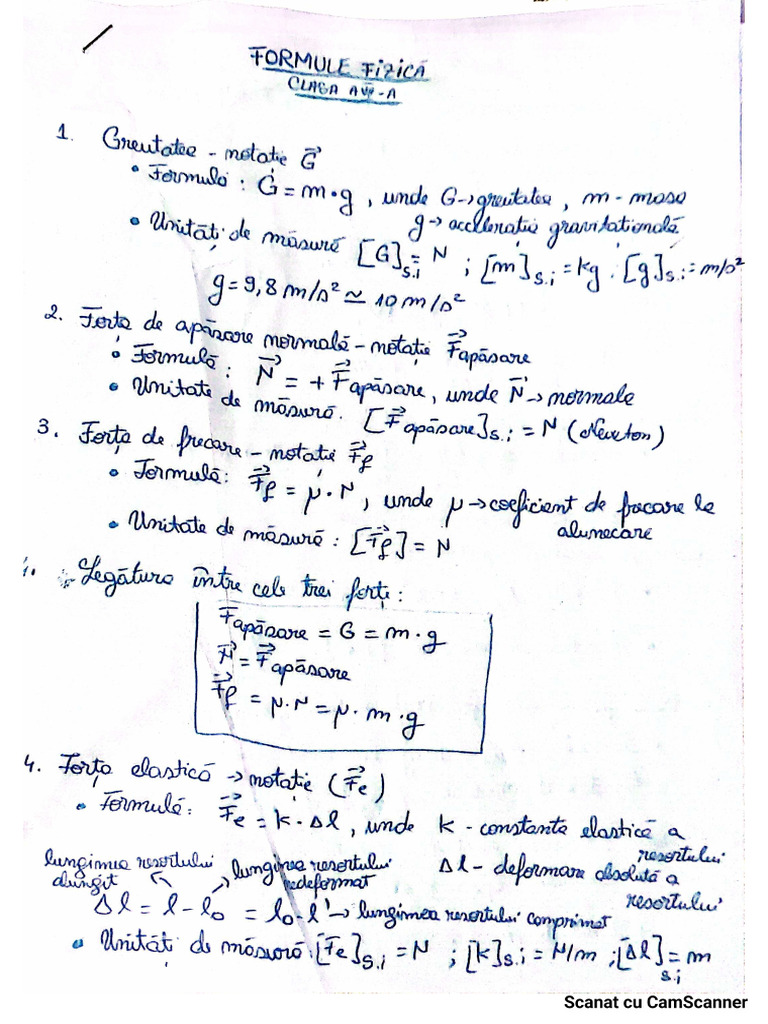 FORMULE FIZICĂ
CLASA A VII-A
1. Greutatea - notatie G⃗
• Formula : G = m·g , unde G→greutatea , m - masa
g→ accelerație gravitațională
• Unități de măsură [G]s.i = N ; [m]s.i = kg . [g]s.i = m/s²
g = 9,8 m/s² ≃ 10 m/s²
2. Forța de apăsare normală - notație F⃗apăsare
• Formulă : N⃗ = + F⃗apăsare, unde N⃗→normale
• Unitate de măsură. [F⃗apăsare]s.i = N (Newton)
3. Forța de frecare - notație F⃗f
• Formulă: F⃗f = μ·N , unde μ→coeficient de frecare la
alunecare
• Unitate de măsură : [F⃗f] = N
Legătura între cele trei forțe :
Fapăsare = G = m·g
N⃗ = F⃗apăsare
F⃗f = μ·N = μ·m·g
4. Forța elastică → notație (F⃗e)
• Formulă: F⃗e = k·Δl , unde k - constanta elastică a
resortului
lungimea resortului alungit
lungimea resortului nedeformat
Δl - deformare absolută a
resortului
Δl = l - l₀ = l₀ - l' → lungimea resortului comprimat
• Unități de măsură: [Fe]s.i = N ; [k]s.i = N/m ; [Δl]s.i = m
Scanat cu CamScanner